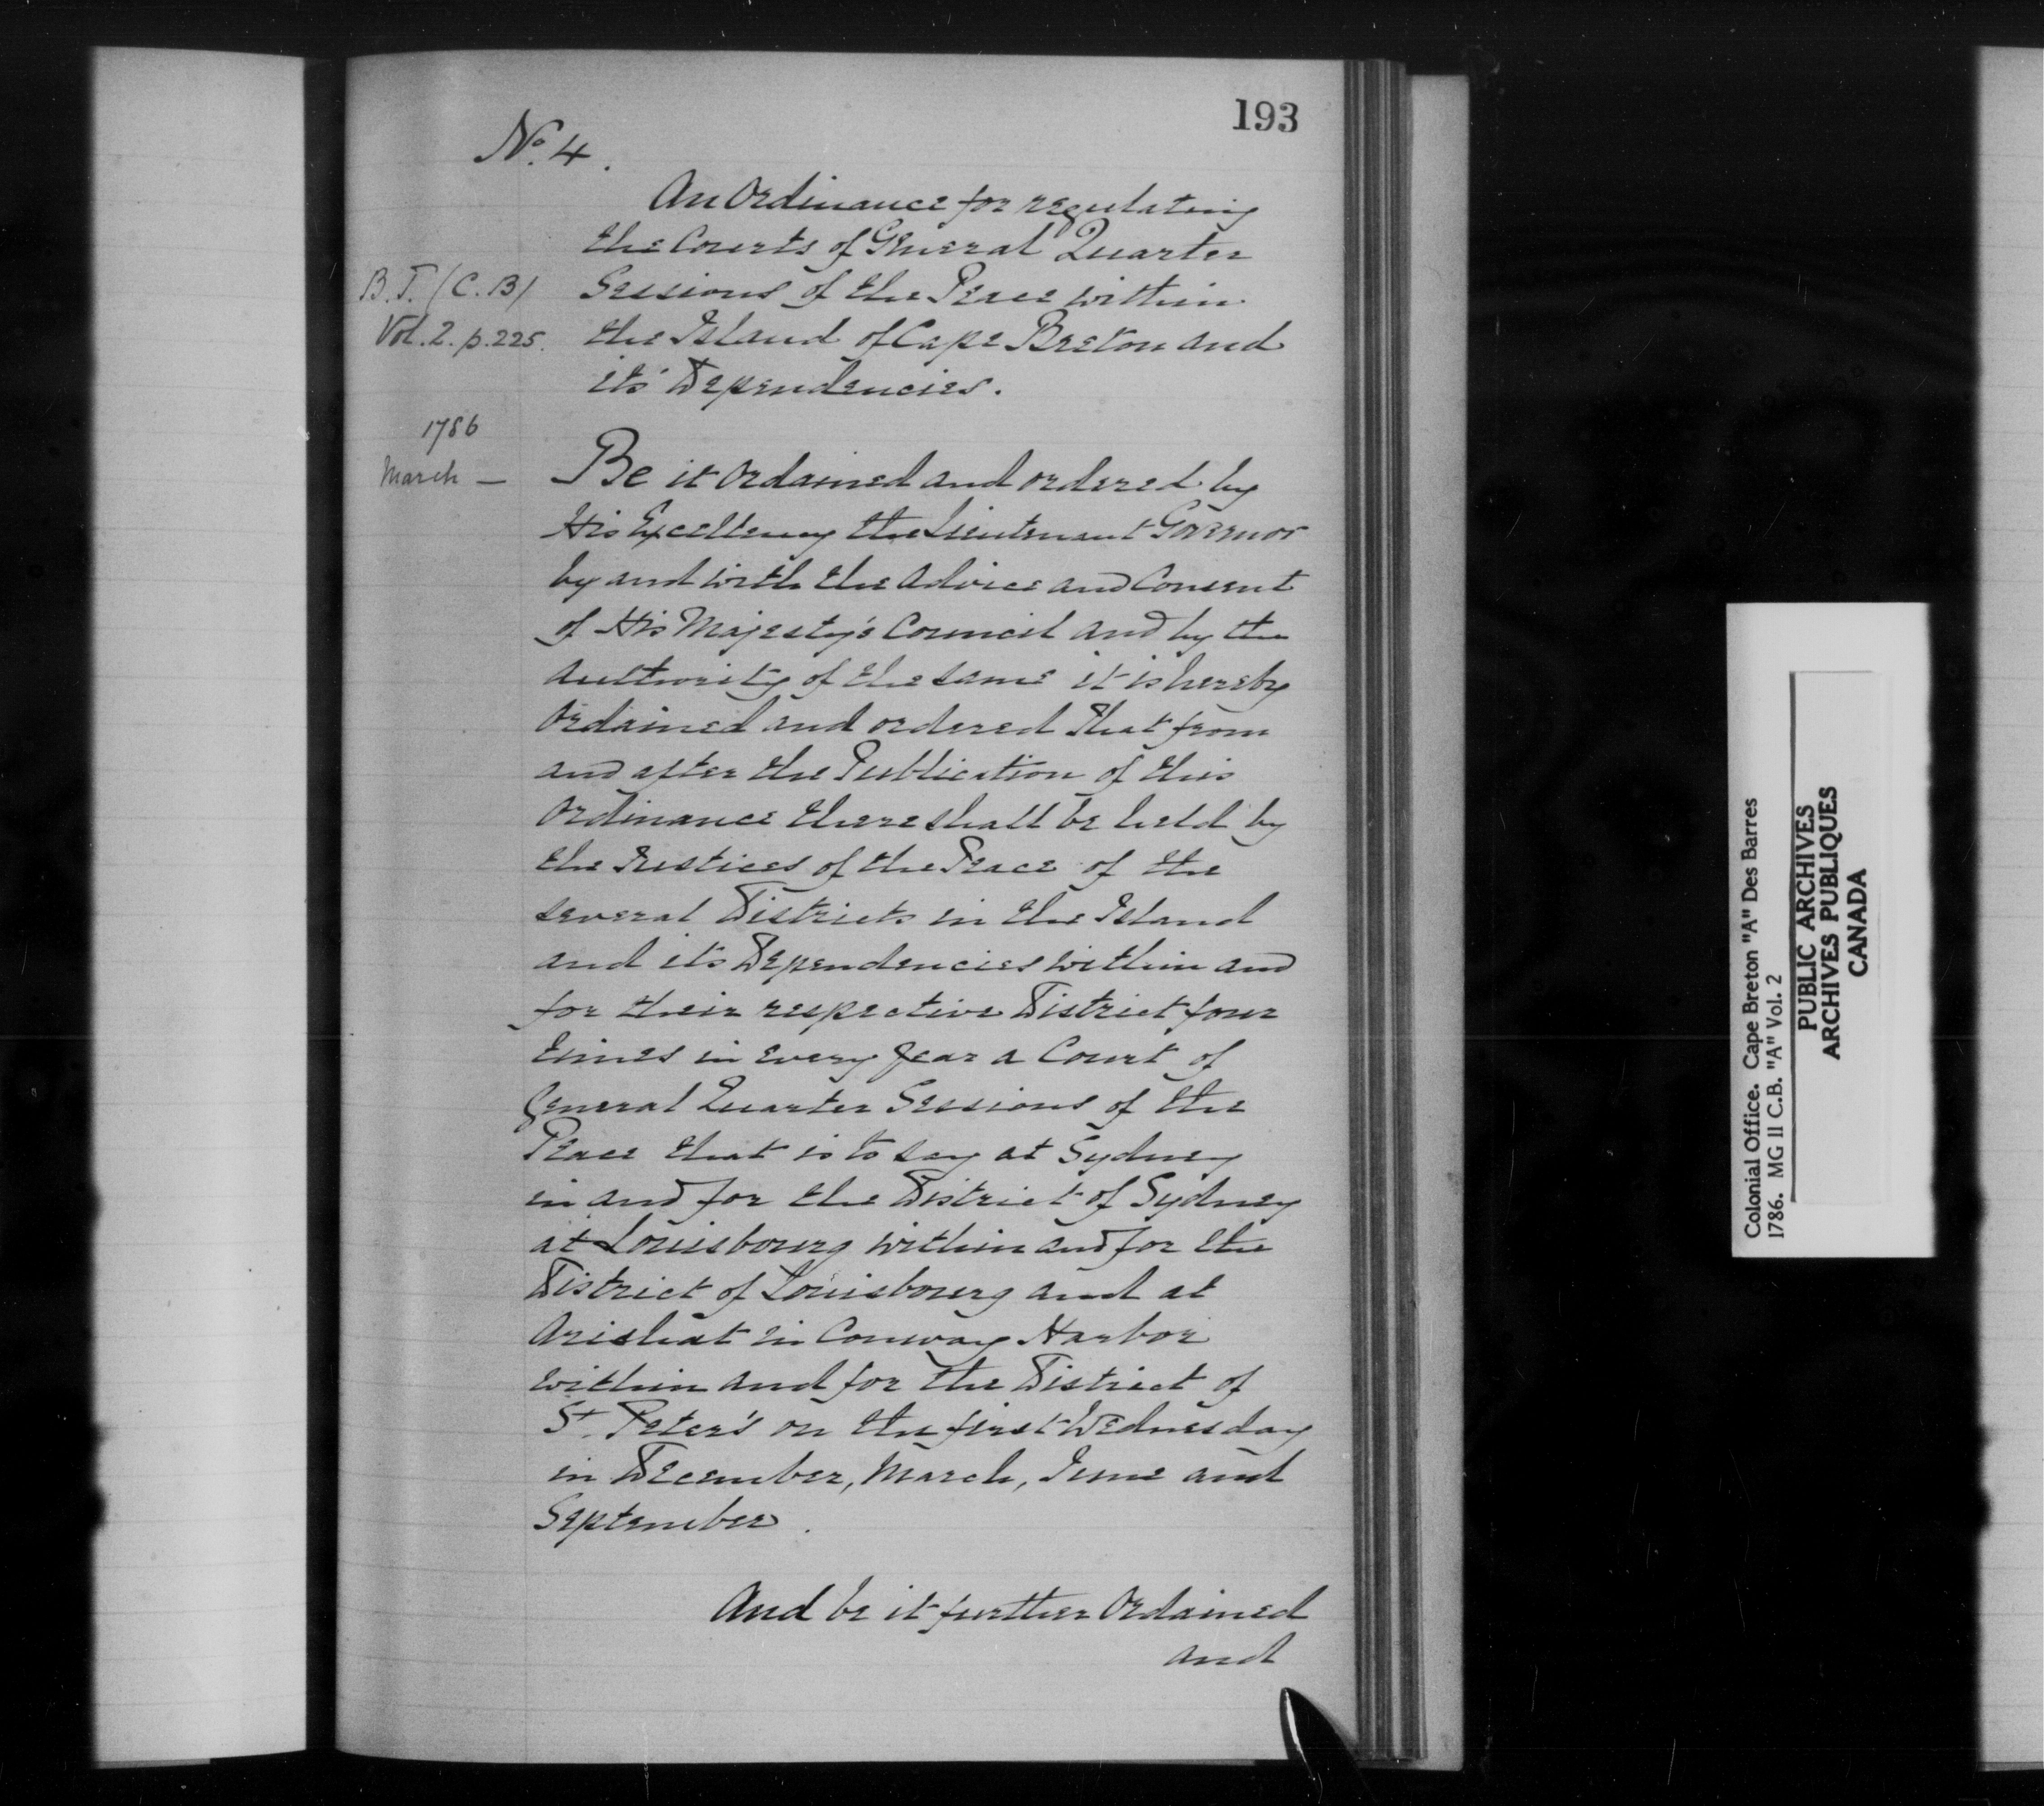 193
No. 4.
An Ordinance for regulating
the Courts of General Quarter
B.T. (C.B)
Sessions of the Peace within
Vol. 2. p. 225.
the Island of Cape Breton and
its' Dependencies.
1786
March —
Be it Ordained and ordered by
His Excellency the Lieutenant Governor
by and with the Advice and Consent
of His Majesty's Council and by the
Authority of the same it is hereby
Ordained and ordered that from
and after the Publication of this
Ordinance there shall be held by
the Justices of the Peace of the
several Districts in the Island
and it's Dependencies within and
for their respective District four
times in every year a Court of
General Quarter Sessions of the
Peace that is to say at Sydney
in and for the District of Sydney
at Louisbourg within and for the
District of Louisbourg and at
Arishat in Conway Harbor
within and for the District of
St. Peter's on the first Wednesday
in December, March, June and
September.
And be it further Ordained
and
Colonial Office. Cape Breton "A" Des Barres
1786. MG II C.B. "A" Vol. 2
PUBLIC ARCHIVES
ARCHIVES PUBLIQUES
CANADA